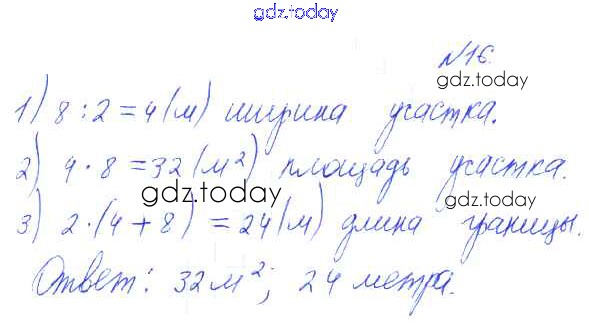 gdz.today
№16.
gdz.today
1) 8 : 2 = 4 (м) ширина участка.
2) 4 · 8 = 32 (м²) площадь участка.
gdz.today
gdz.today
3) 2 · (4 + 8) = 24 (м) длина границы.
Ответ: 32 м²; 24 метра.